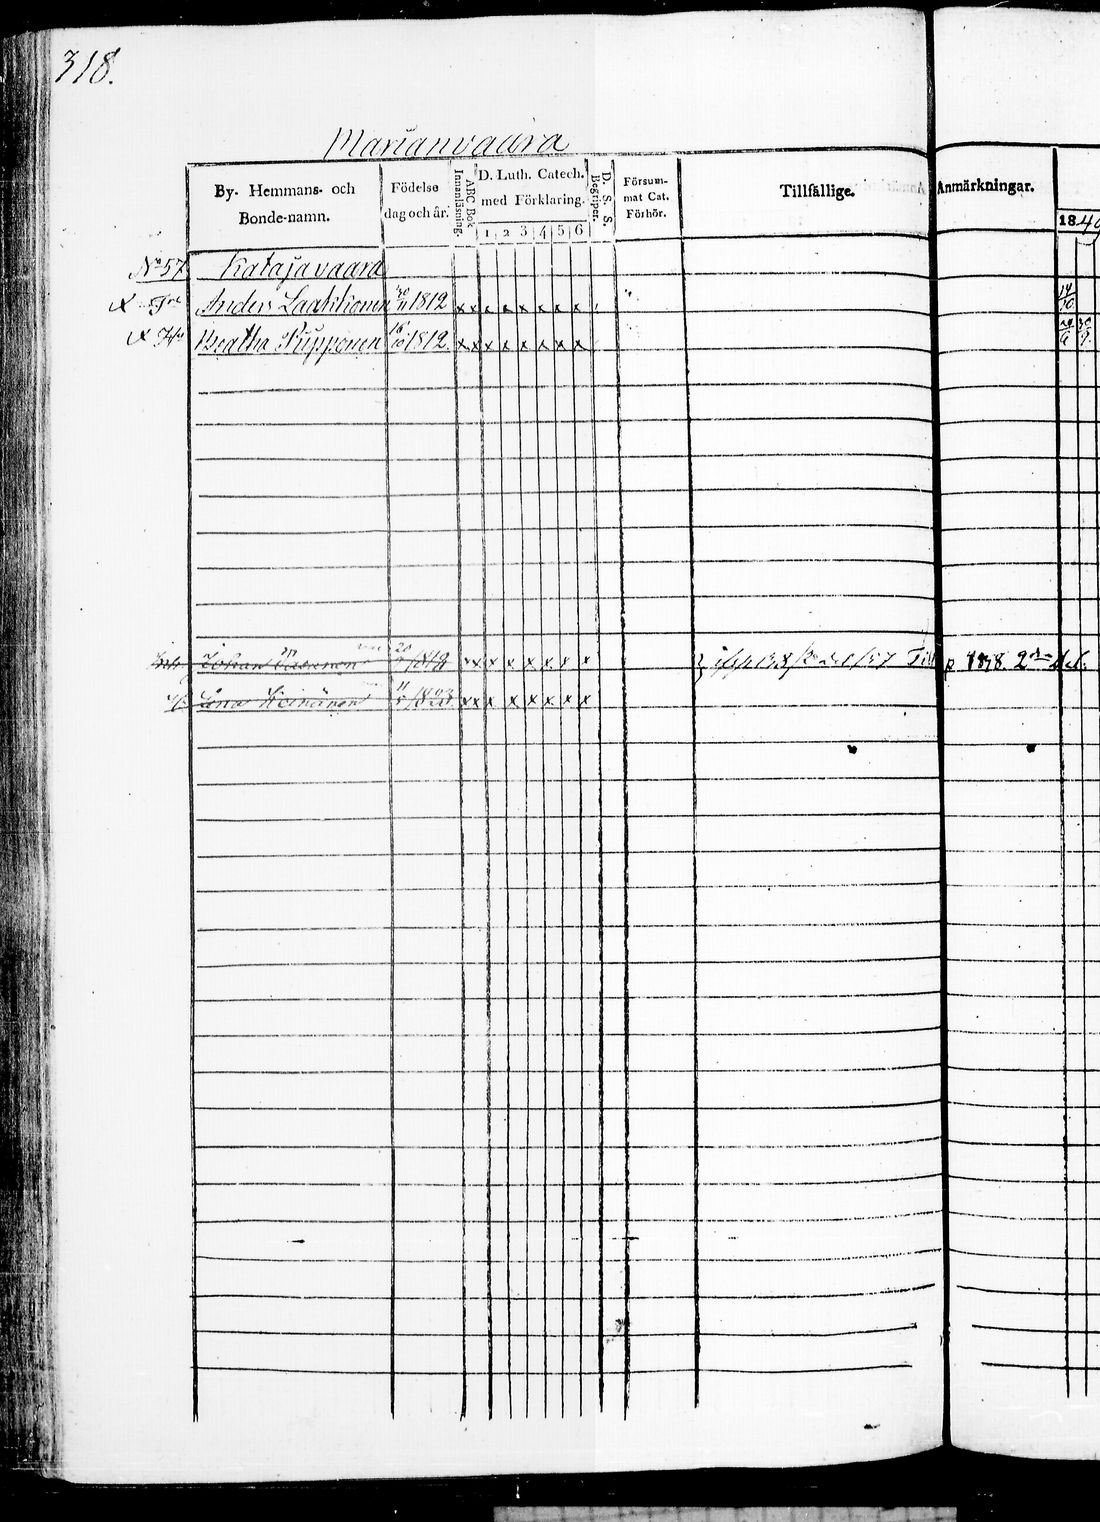 318.
Marianvaara
By- Hemmans- och Bonde-namn.
Födelse dag och år.
ABC Bok Innanläsning.
D. Luth. Catech. med Förklaring.
1 2 3 4 5 6
D. S. S. Begriper.
Försum- mat Cat. Förhör.
Tillfällige. Anmärkningar.
1840
No 57 Katajavaara
x Anders Laakkonen 30/11 1812 x x x x x x x x 14/10
x Beatha Turpponen 16/10 1812. x x x x x x x x 24/6 30/9
Johan 20 1819 x x x x x x x x 57 p 1878. 2
Lena Heinänen 11/5 1823 x x x x x x x x